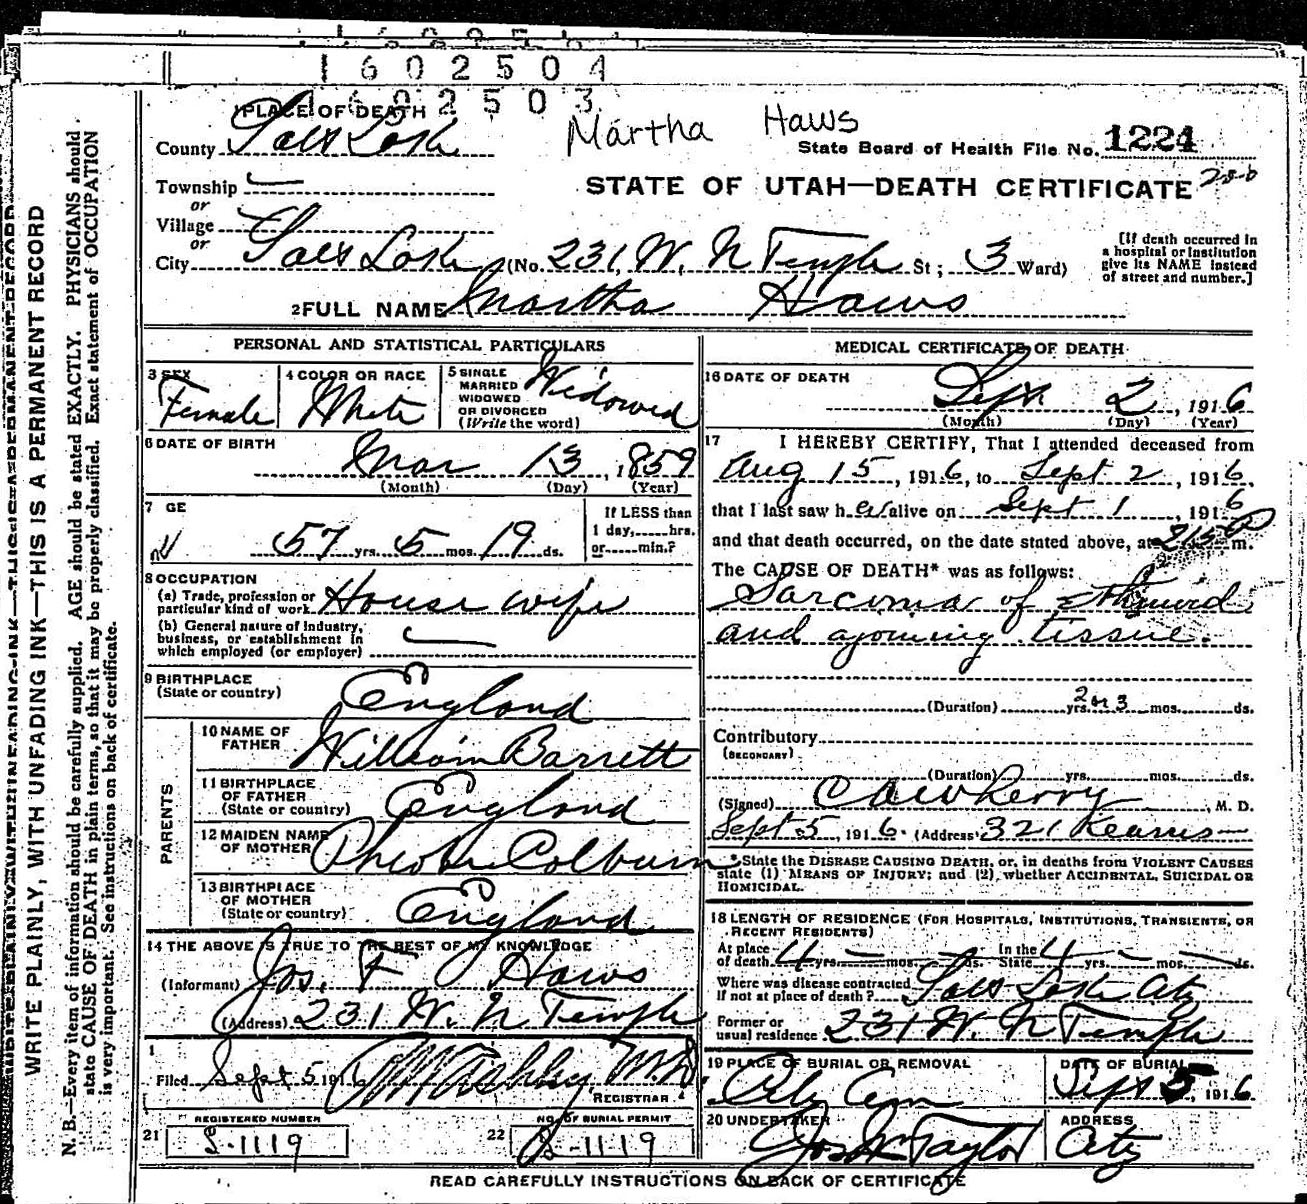 1602504
1602503
PLACE OF DEATH
Martha Haws
County Salt Lake
State Board of Health File No. 1224
Township
or
STATE OF UTAH—DEATH CERTIFICATE
Village
or
City Salt Lake (No. 231 W. N Temple St; 3 Ward)
[If death occurred in a hospital or institution give its NAME instead of street and number.]
2 FULL NAME Martha Haws
PERSONAL AND STATISTICAL PARTICULARS
3 SEX Female
4 COLOR OR RACE White
5 SINGLE MARRIED WIDOWED OR DIVORCED (Write the word) Widowed
6 DATE OF BIRTH
Mar 13, 1859
(Month) (Day) (Year)
7 GE
57 yrs. 5 mos. 19 ds.
If LESS than 1 day,......hrs. or......min.?
8 OCCUPATION
(a) Trade, profession or particular kind of work House wife
(b) General nature of industry, business, or establishment in which employed (or employer)
9 BIRTHPLACE
(State or country) England
PARENTS
10 NAME OF FATHER William Barrett
11 BIRTHPLACE OF FATHER (State or country) England
12 MAIDEN NAME OF MOTHER Colburn
13 BIRTHPLACE OF MOTHER (State or country) England
14 THE ABOVE IS TRUE TO THE BEST OF MY KNOWLEDGE
(Informant) Jos. F Haws
(Address) 231 W. N Temple
Filed Sept 5 1916
REGISTRAR
REGISTERED NUMBER
21 S-1119
NO. OF BURIAL PERMIT
22 S-1119
MEDICAL CERTIFICATE OF DEATH
16 DATE OF DEATH
Sept 2, 1916
(Month) (Day) (Year)
17 I HEREBY CERTIFY, That I attended deceased from
Aug 15, 1916, to Sept 2, 1916,
that I last saw her alive on Sept 1, 1916
and that death occurred, on the date stated above, at m.
The CAUSE OF DEATH* was as follows:
Sarcoma of
and ajoining tissue.
(Duration) yrs. 2 or 3 mos. ds.
Contributory
(SECONDARY)
(Duration) yrs. mos. ds.
(Signed) M. D.
Sept 5, 1916. (Address) 321 Kearns
*State the DISEASE CAUSING DEATH, or, in deaths from VIOLENT CAUSES
state (1) MEANS OF INJURY; and (2), whether ACCIDENTAL, SUICIDAL OR
HOMICIDAL.
18 LENGTH OF RESIDENCE (FOR HOSPITALS, INSTITUTIONS, TRANSIENTS, OR RECENT RESIDENTS)
At place of death 4 yrs. mos. ds. In the State 4 yrs. mos. ds.
Where was disease contracted if not at place of death? Salt Lake City
Former or usual residence 231 W. N Temple
19 PLACE OF BURIAL OR REMOVAL
City Cem
DATE OF BURIAL
Sept 5, 1916
20 UNDERTAKER
Jos Wm Taylor
ADDRESS
City
READ CAREFULLY INSTRUCTIONS ON BACK OF CERTIFICATE
WRITE PLAINLY, WITH UNFADING INK—THIS IS A PERMANENT RECORD
N. B.—Every item of information should be carefully supplied. AGE should be stated EXACTLY. PHYSICIANS should
state CAUSE OF DEATH in plain terms, so that it may be properly classified. Exact statement of OCCUPATION
is very important. See instructions on back of certificate.